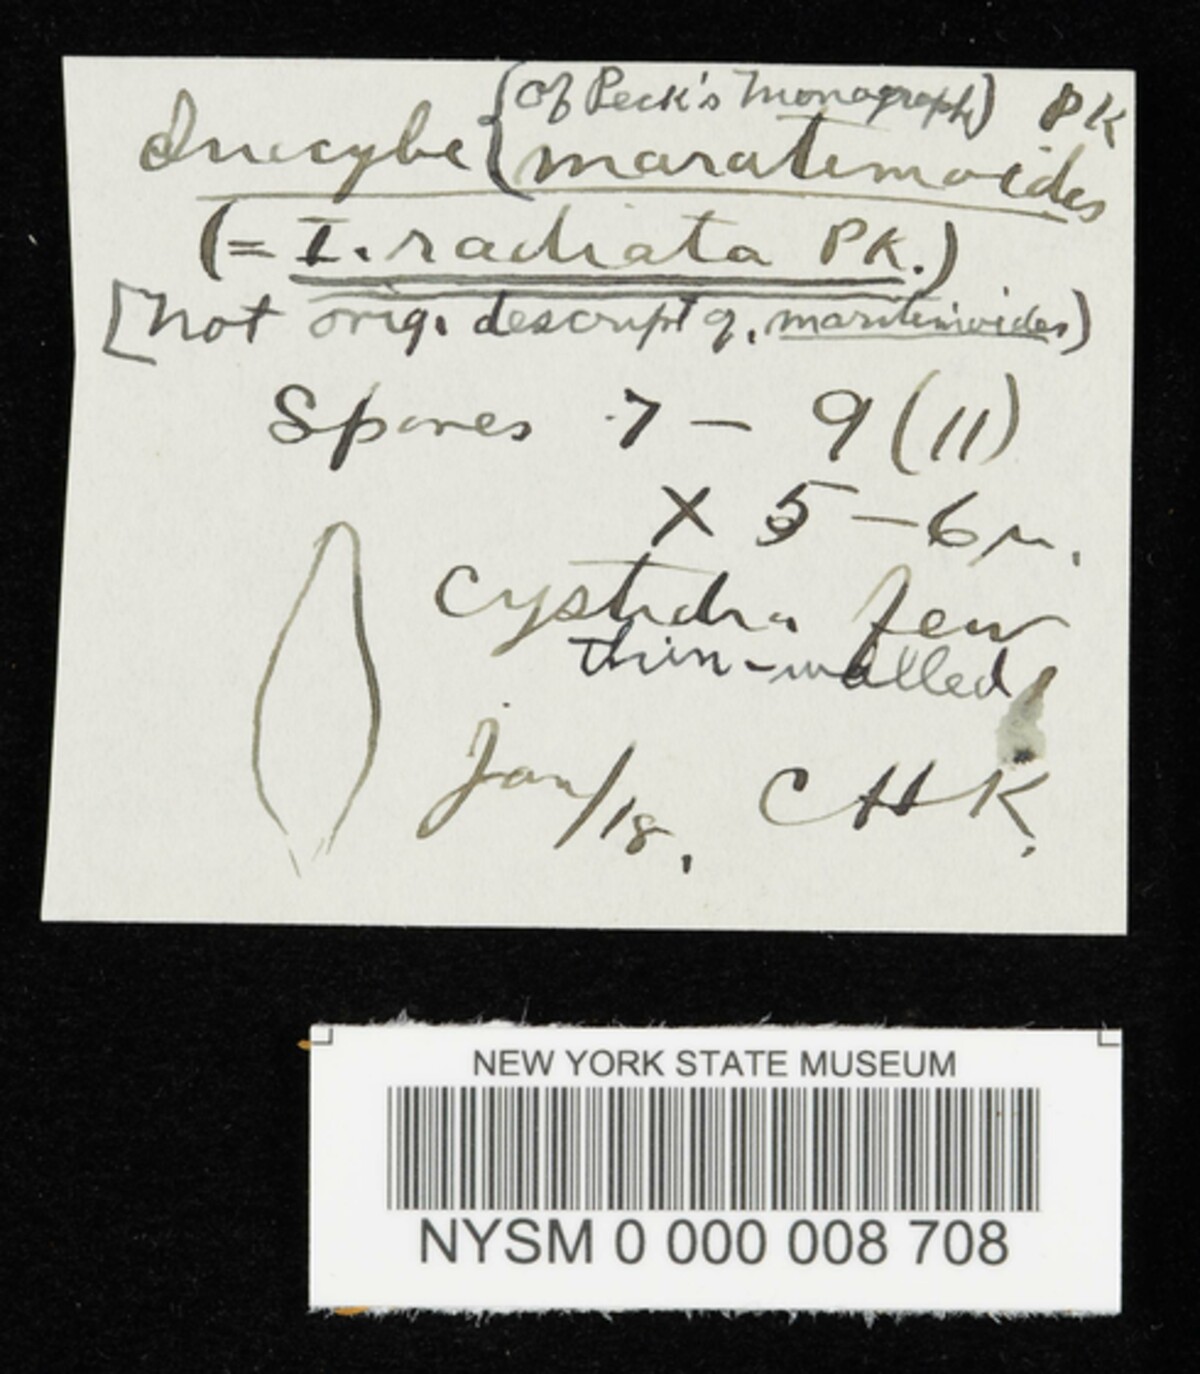 (of Peck's Monograph) PK
Inocybe { maratimoides
(= I. radiata PK.)
[not orig. descript of. maritimoides)
Spores 7 – 9 (11)
× 5 – 6 μ.
Cystidia few
thin-walled
Jan/18. CHK.
NEW YORK STATE MUSEUM
NYSM 0 000 008 708